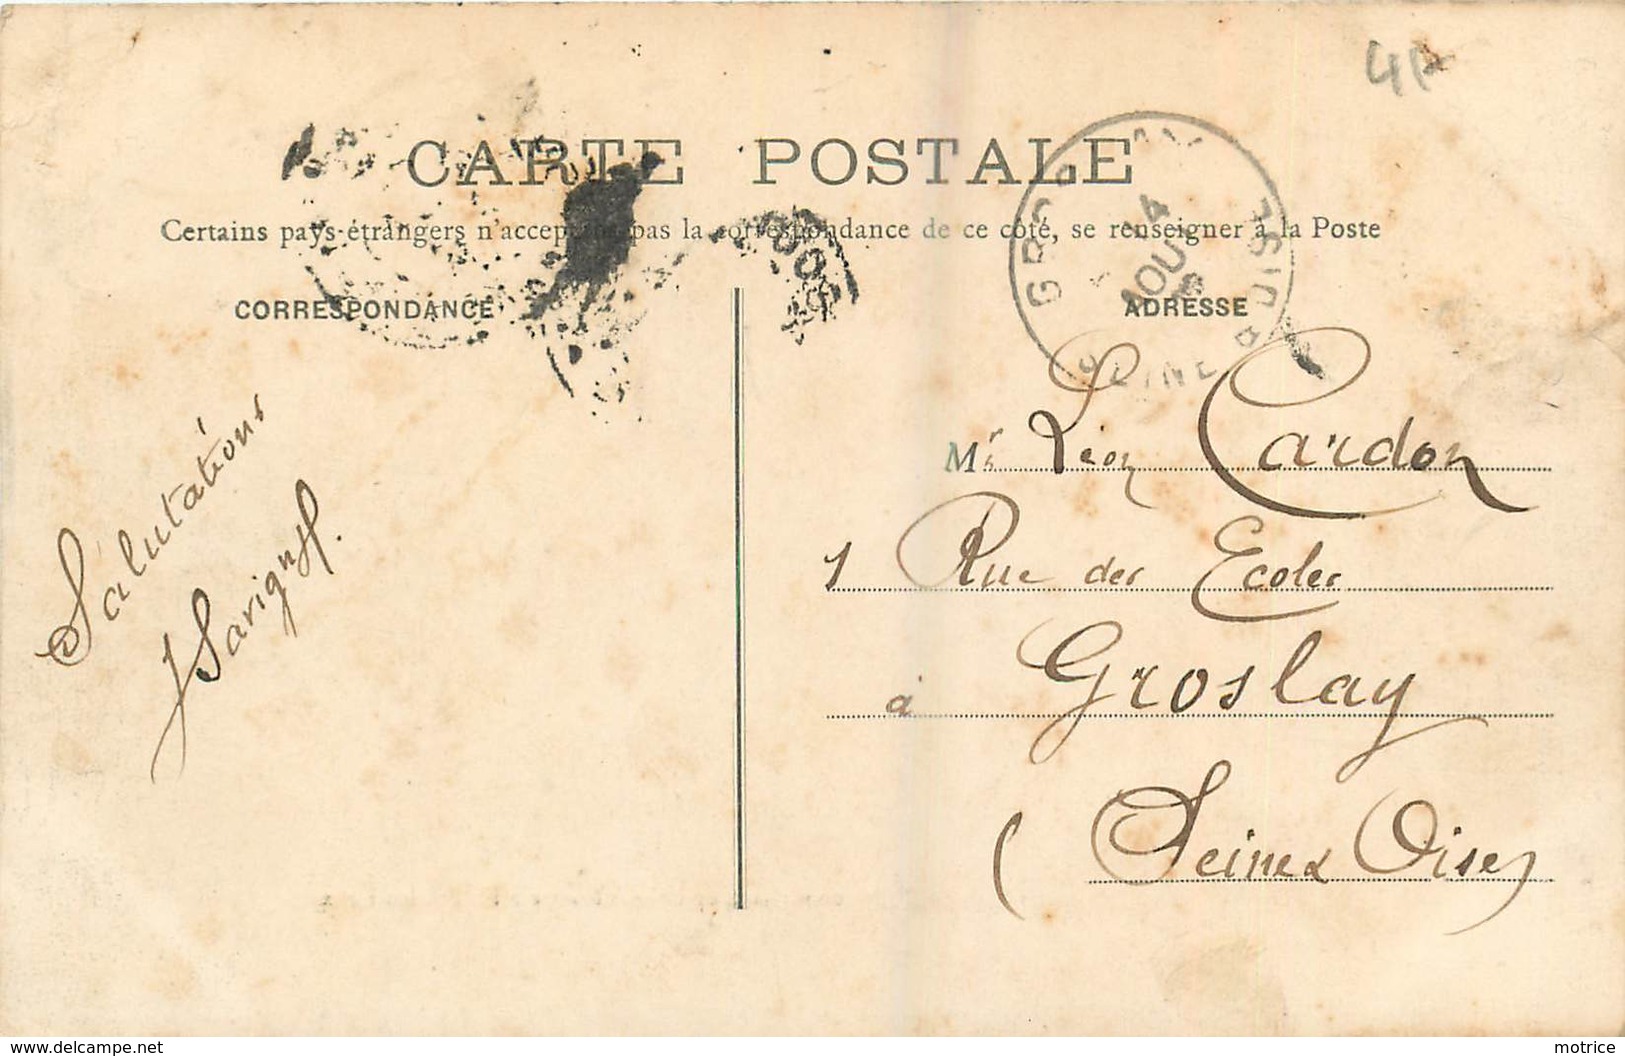 4
CARTE POSTALE
Certains pays étrangers n'acceptant pas la correspondance de ce côté, se renseigner à la Poste
CORRESPONDANCE
ADRESSE
14
AOUT
SEINE & OISE
Salutations
Savigny
Mr Léon Cardon
1 Rue des Ecoles
à Groslay
(Seine & Oise)
delcampe.net
motrice